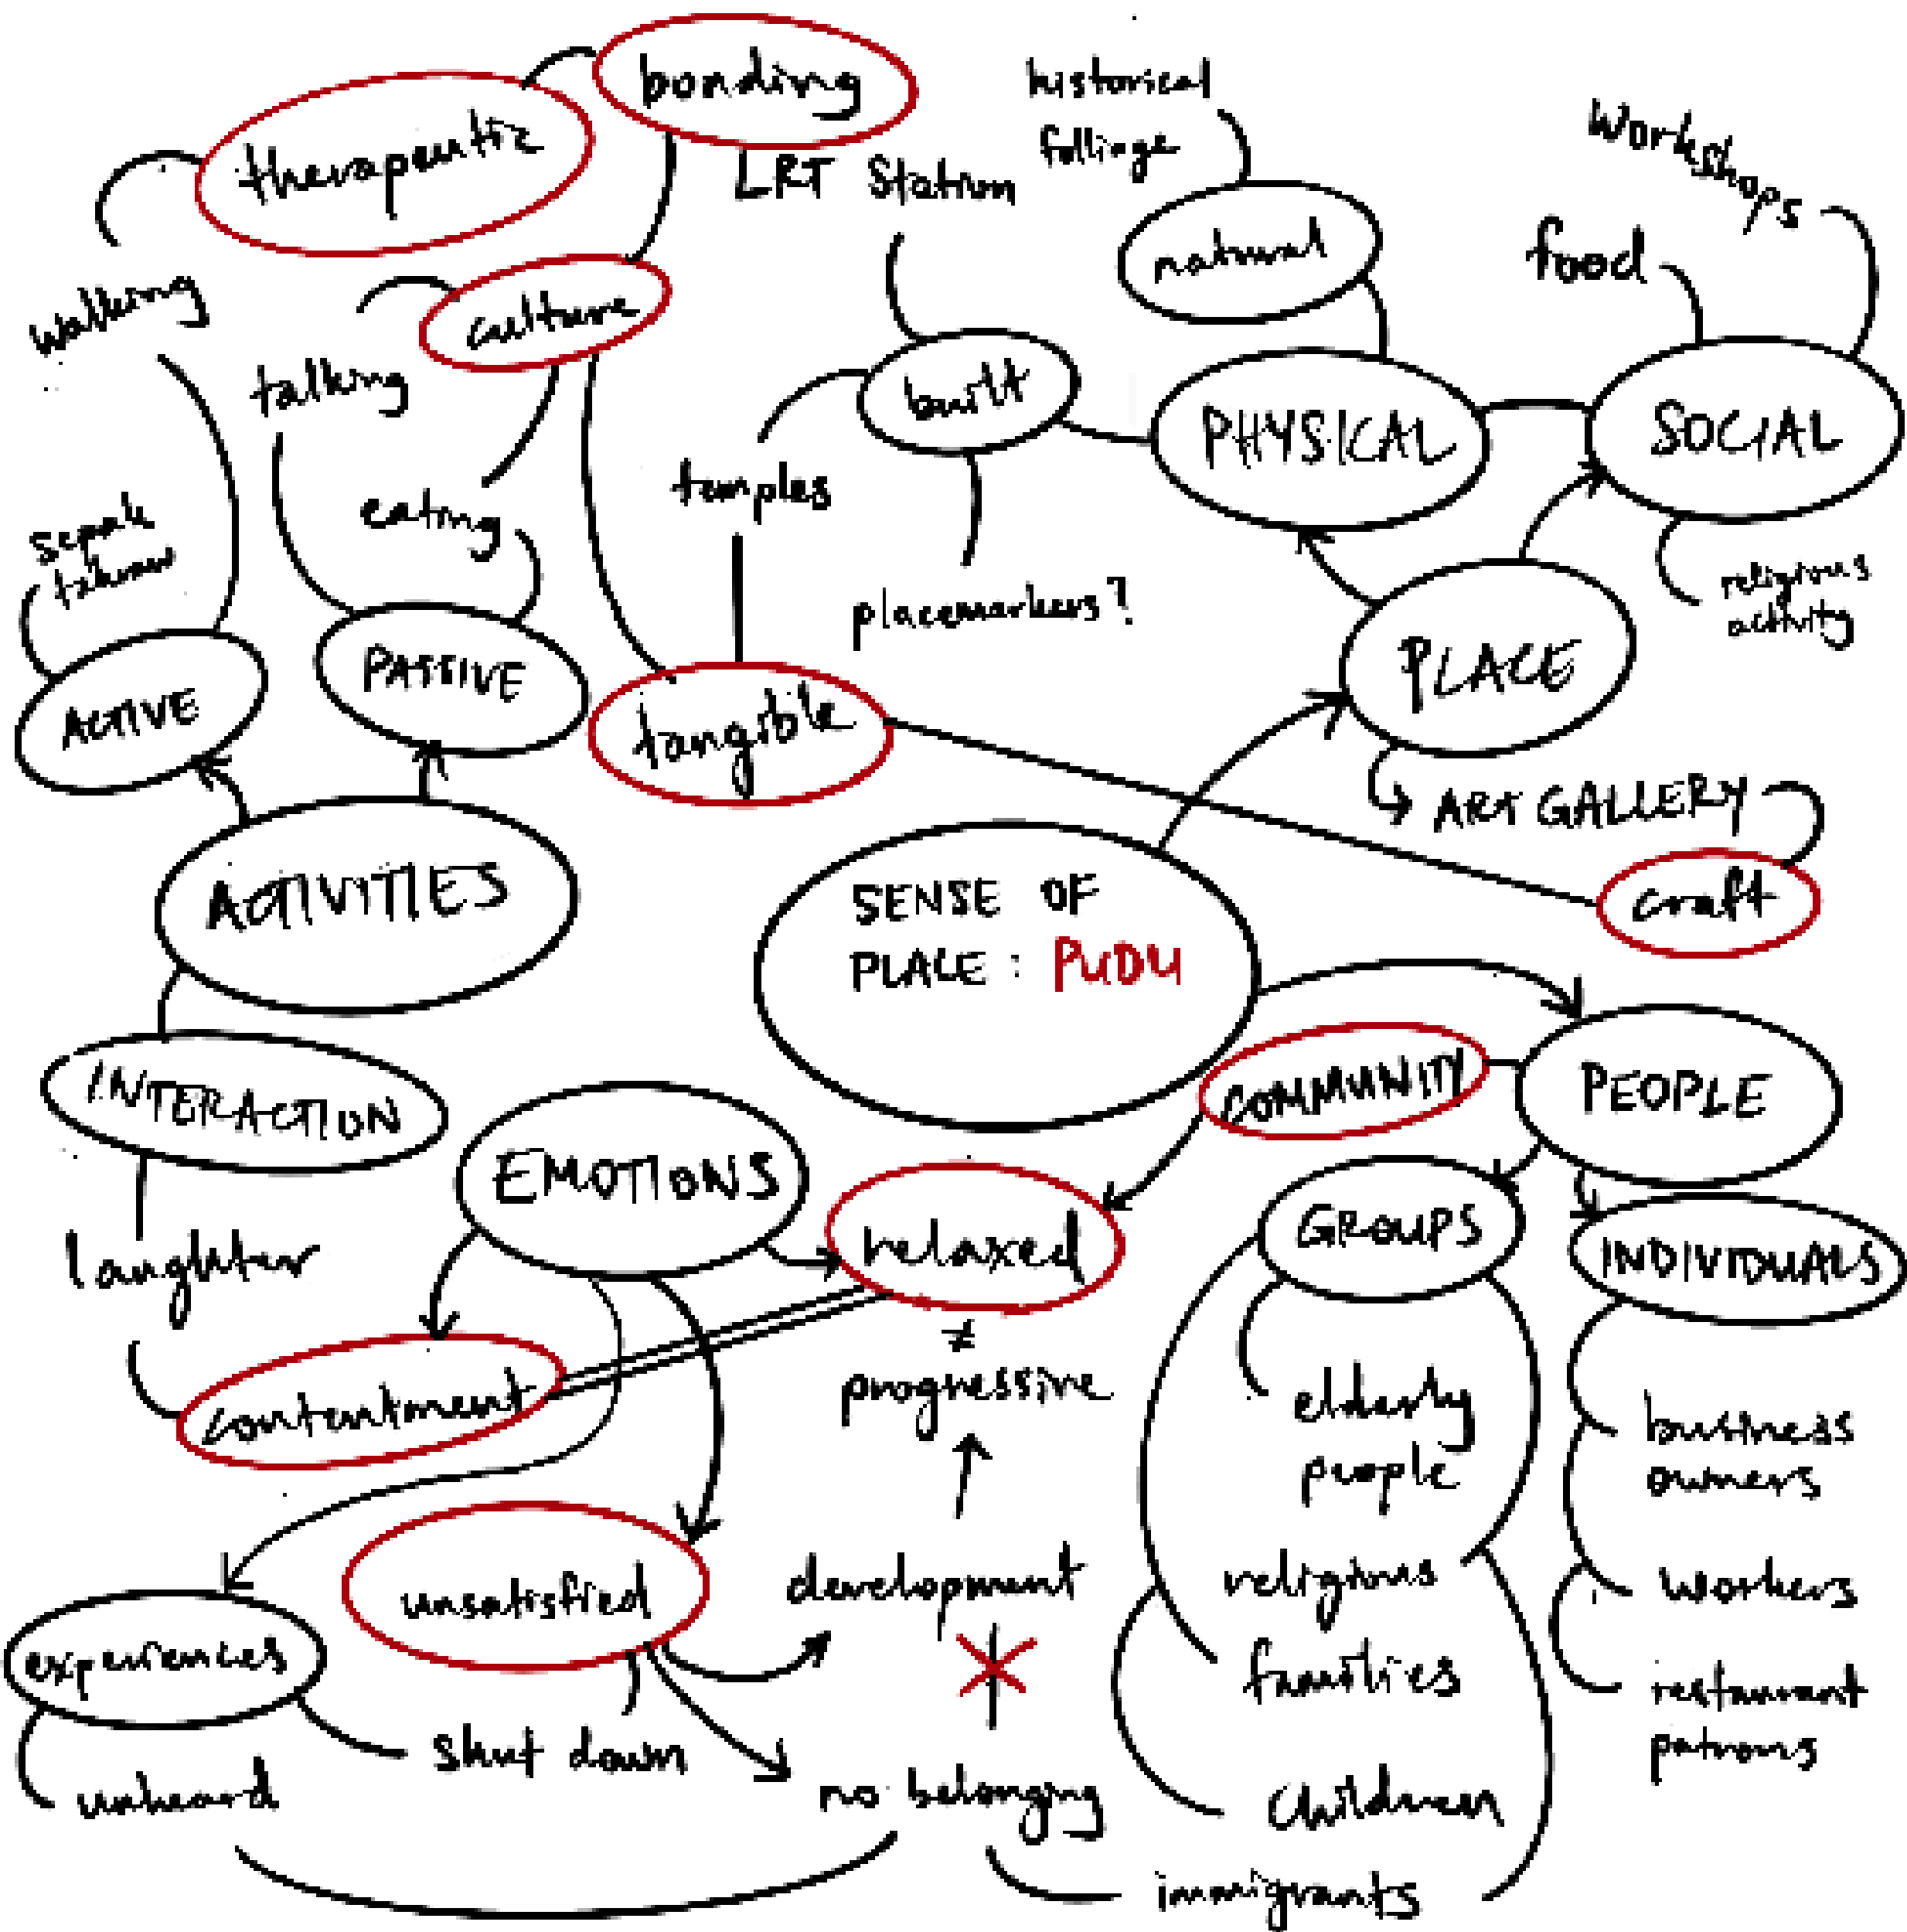 bonding
therapeutic
historical
follinge
Workshops
LRT Station
natural
food
walking
culture
talking
built
PHYSICAL
SOCIAL
temples
eating
sepak
takraw
placemarkers?
religious
activity
PASSIVE
PLACE
ACTIVE
tangible
ART GALLERY
ACTIVITIES
SENSE OF
PLACE : PUDU
craft
INTERACTION
COMMUNITY
PEOPLE
EMOTIONS
relaxed
GROUPS
INDIVIDUALS
laughter
≠
progressive
contentment
elderly
people
business
owners
unsatisfied
development
religious
workers
experiences
families
restaurant
patrons
shut down
unheard
no belonging
children
immigrants